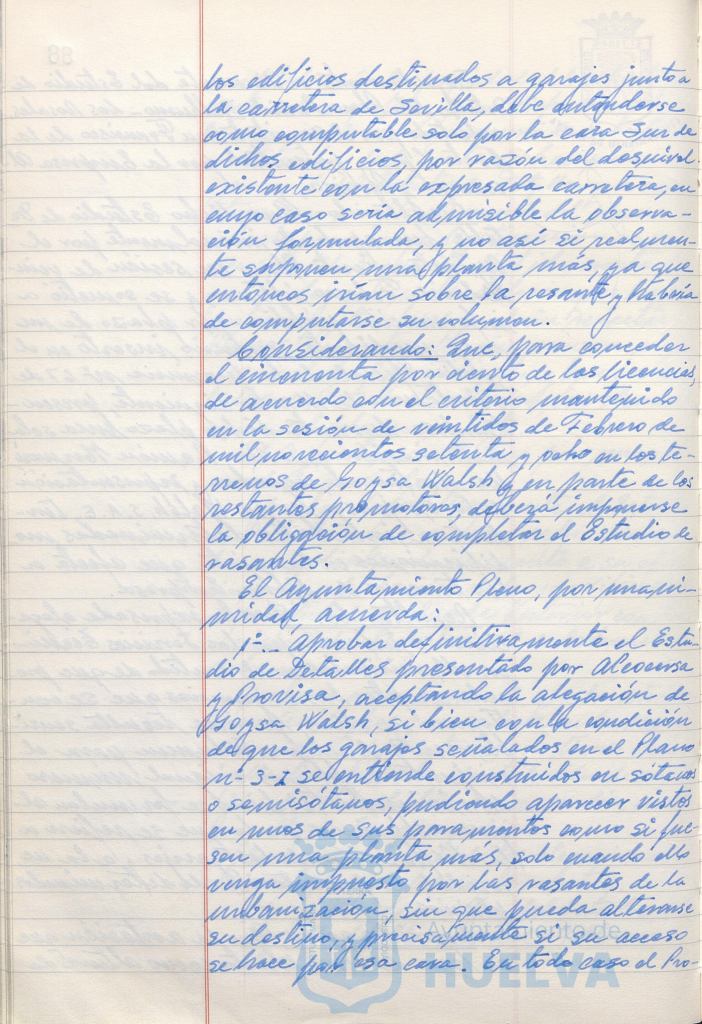 los edificios destinados a garajes junto a
la carretera de Sevilla, debe entenderse
como computable solo por la cara Sur de
dichos edificios, por razón del desnivel
existente con la expresada carretera, en
cuyo caso sería admisible la observa-
ción formulada, y no así si realmen-
te suponen una planta más, ya que
entonces irían sobre la rasante, y habría
de computarse su volumen.
Considerando: Que, para conceder
el cincuenta por ciento de las licencias,
de acuerdo con el criterio mantenido
en la sesión de veintidos de Febrero de
mil novecientos setenta y ocho en los te-
rrenos de Goysa Walsh y en parte de los
restantes promotores, deberá imponerse
la obligación de completar el Estudio de
rasantes.
El Ayuntamiento Pleno, por unani-
midad, acuerda:
1º.- Aprobar definitivamente el Estu-
dio de Detalles presentado por Alcocersa
y Provisa, aceptando la alegación de
Goysa Walsh, si bien con la condición
de que los garajes señalados en el Plano
nº 3-I se entiende construidos en sótanos
o semisótanos, pudiendo aparecer vistos
en unos de sus paramentos como si fue-
sen una planta más, solo cuando ello
venga impuesto por las rasantes de la
urbanización, sin que pueda alterarse
su destino, y precisamente si su acceso
se hace por esa cara. En todo caso el Pro-
Ayuntamiento de
HUELVA